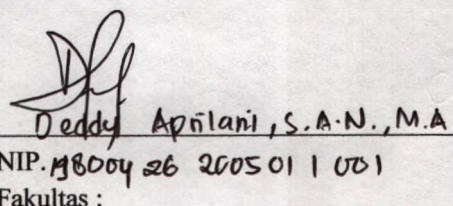 Deddy Aprilani, S.A.N., M.A
NIP. 198004 26 200501 1 001
Fakultas :